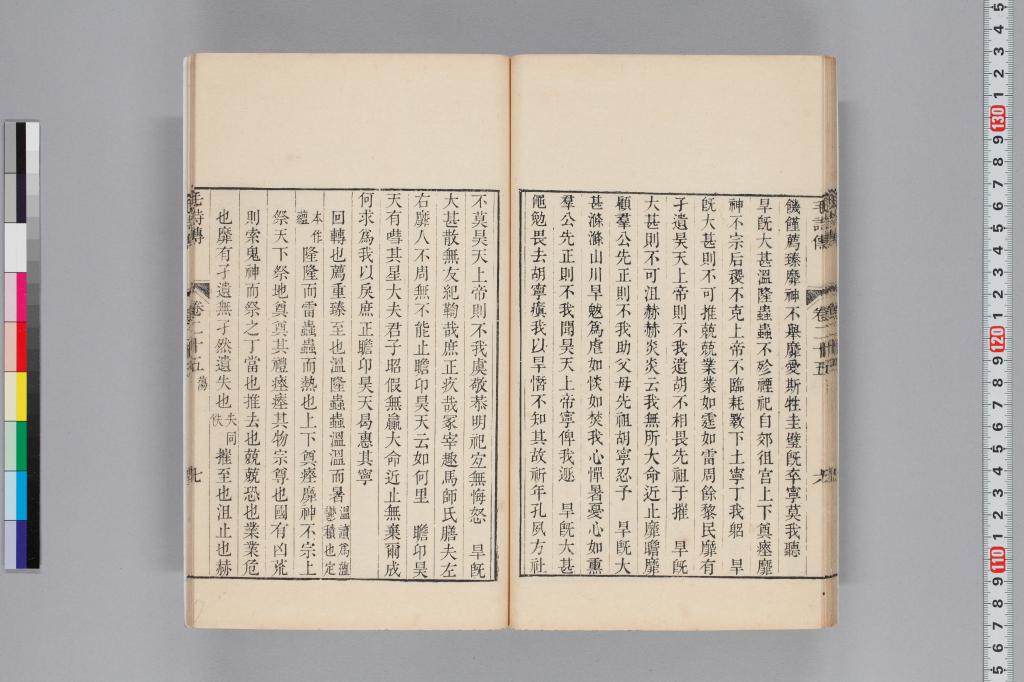 饑饉薦臻靡神不舉靡愛斯牲圭璧旣卒寧莫我聽
旱旣大甚溫隆蟲蟲不殄禋祀自郊徂宮上下奠瘞靡
神不宗后稷不克上帝不臨耗斁下土寧丁我躬　旱
旣大甚則不可推兢兢業業如霆如雷周餘黎民靡有
孑遺昊天上帝則不我遺胡不相畏先祖于摧　旱旣
大甚則不可沮赫赫炎炎云我無所大命近止靡瞻靡
顧羣公先正則不我助父母先祖胡寧忍予　旱旣大
甚滌滌山川旱魃爲虐如惔如焚我心憚暑憂心如熏
羣公先正則不我聞昊天上帝寧俾我遯　旱旣大甚
黽勉畏去胡寧瘨我以旱憯不知其故祈年孔夙方社
不莫昊天上帝則不我虞敬恭明祀宐無悔怒　旱旣
大甚散無友紀鞫哉庶正疚哉冢宰趣馬師氏膳夫左
右靡人不周無不能止瞻卬昊天云如何里　瞻卬昊
天有嘒其星大夫君子昭假無贏大命近止無棄爾成
何求爲我以戾庶正瞻卬昊天曷惠其寧
回轉也薦重臻至也溫隆蟲蟲溫溫而暑溫讀爲薀鬱積也定
本作蘊隆隆而雷蟲蟲而熱也上下奠瘞靡神不宗上
祭天下祭地奠奠其禮瘞瘞其物宗尊也國有凶荒
則索鬼神而祭之丁當也推去也兢兢恐也業業危
也靡有孑遺無孑然遺失也失同佚摧至也沮止也赫
毛詩傳
卷二十五
蕩
七